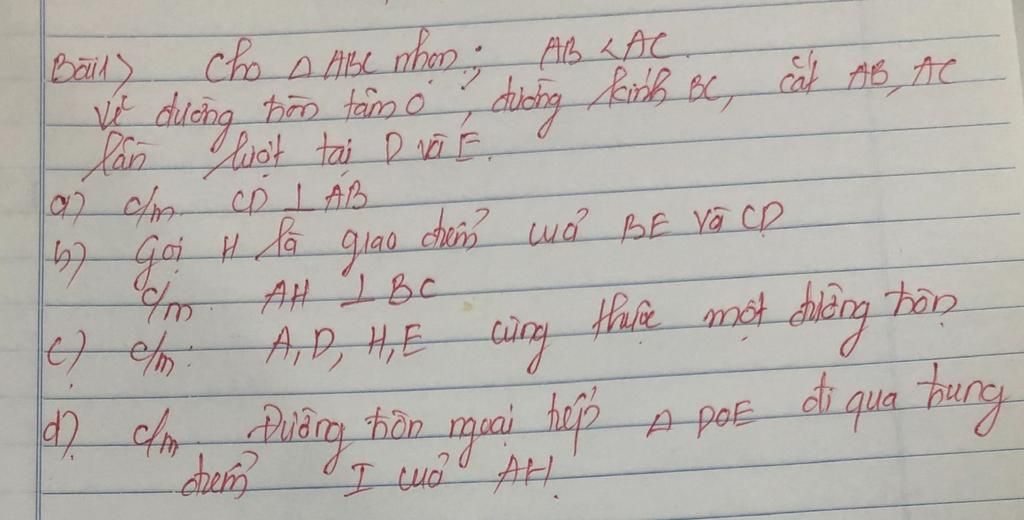 Bài 1> Cho △ ABC nhọn; AB < AC.
Vẽ đường tròn tâm O, đường kính BC, cắt AB, AC
lần lượt tại D và E.
a) c/m. CD ⊥ AB
b) Gọi H là giao điểm của BE và CD
c/m. AH ⊥ BC
c) c/m: A, D, H, E cùng thuộc một đường tròn
d) c/m. Đường tròn ngoại tiếp △ DOE đi qua trung
điểm I của AH.